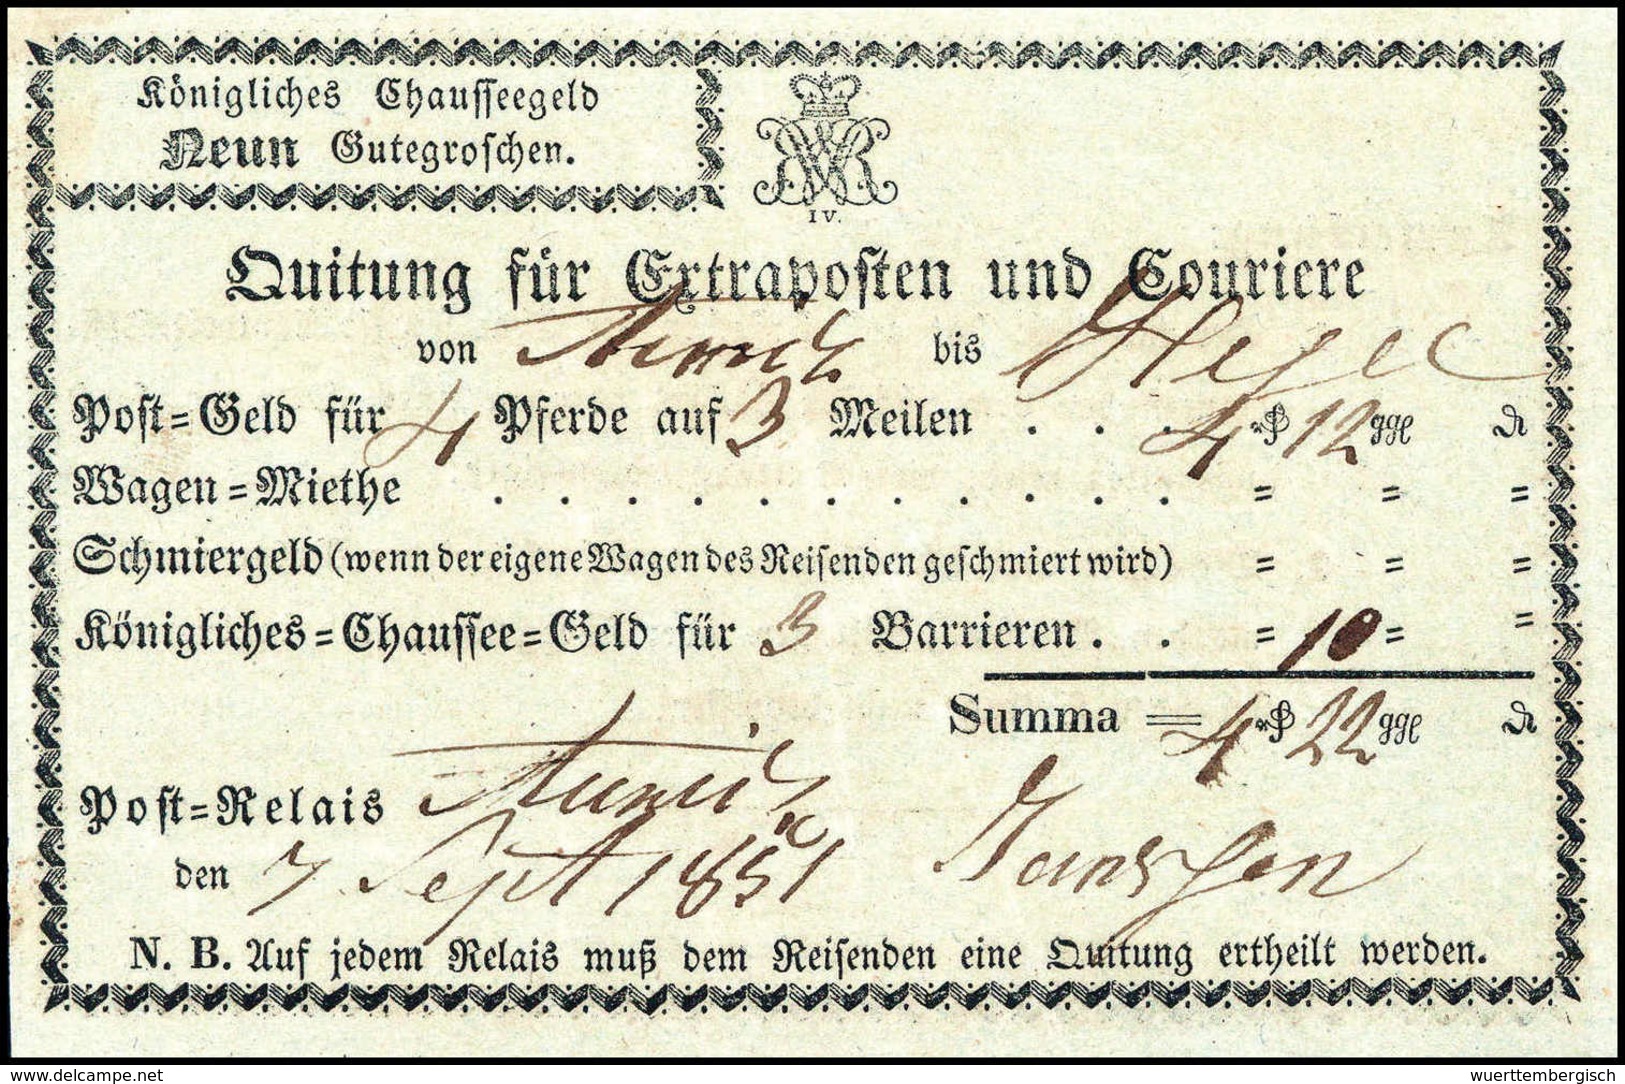 Königliches Chausseegeld
Neun Gutegroschen.
IV.
Quitung für Extraposten und Couriere
von Aurich bis Hesel
Post=Geld für 4 Pferde auf 3 Meilen . . . 4 rß 12 ggl ₰
Wagen=Miethe . . . . . . . . . . . = = =
Schmiergeld (wenn der eigene Wagen des Reisenden geschmiert wird) = = =
Königliches=Chaussee=Geld für 3 Barrieren . . = 10 = =
Summa = 4 rß 22 ggl ₰
Post=Relais Aurich
den 7 Sept 1851 Janssen
N. B. Auf jedem Relais muß dem Reisenden eine Quitung ertheilt werden.
www.delcampe.net
wuerttembergisch